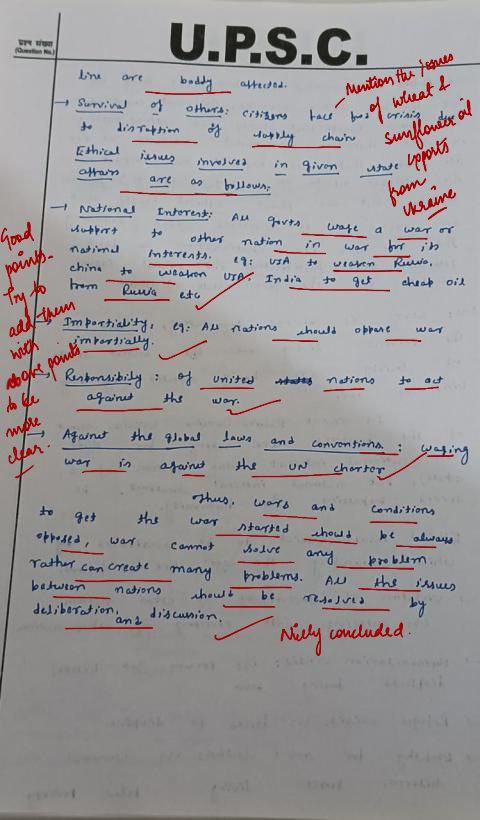 प्रश्न संख्या
(Question No.)
U.P.S.C.
line are baddy affected.
→ Survival of others: citizens face crisis due
to disruption of supply chain
Mention the issues
of wheat &
sunflower oil
exports
from
Ukraine
Ethical issues involved in given state
affairs are as follows:
→ National Interest: All govts wage a war or
support to other nation in war for its
national interests. eg: USA to weaken Russia.
china to weaken USA. India to get cheap oil
from Russia etc
Good
points.
Try to
add them
with
above points
to be
more
clear.
→ Impartiality: eg: All nations should oppose war
impartially.
→ Responsibility: of united nations to act
against the war.
→ Against the global laws and conventions: waging
war is against the UN charter
Thus, wars and conditions
to get the war started should be always
opposed, war cannot solve any problem
rather can create many problems. All the issues
between nations should be resolved by
deliberation, and discussion.
Nicely concluded.